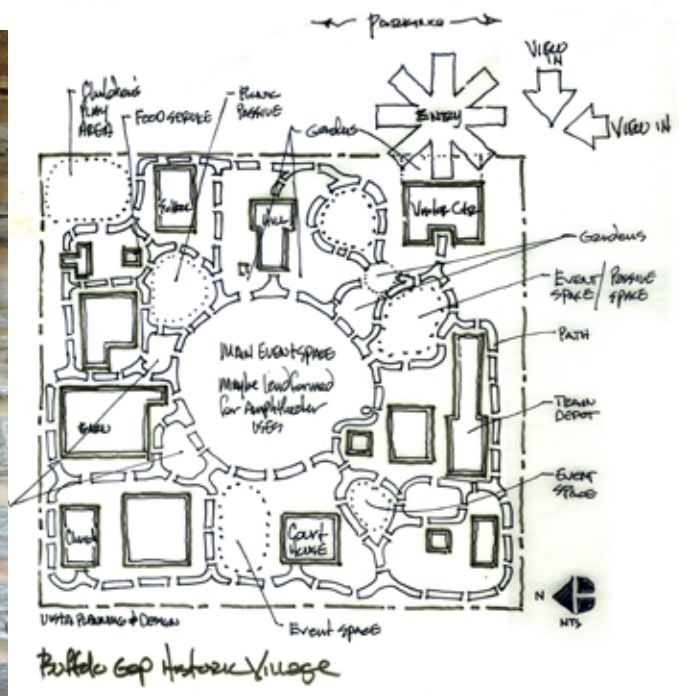 PARKING
VIEW
IN
Children's
PLAY
AREA
FOOD SERVICE
PICNIC
PASSIVE
Gardens
ENTRY
VIEW IN
Visitor CTR
Gardens
EVENT
SPACE/
PASSIVE
SPACE
PATH
MAIN EVENT SPACE
Maybe landformed
for Amphitheater
USES
TRAIN
DEPOT
EVENT
SPACE
Church
Court
HOUSE
N
NTS
VISTA PLANNING & DESIGN
Event space
Buffalo Gap Historic Village